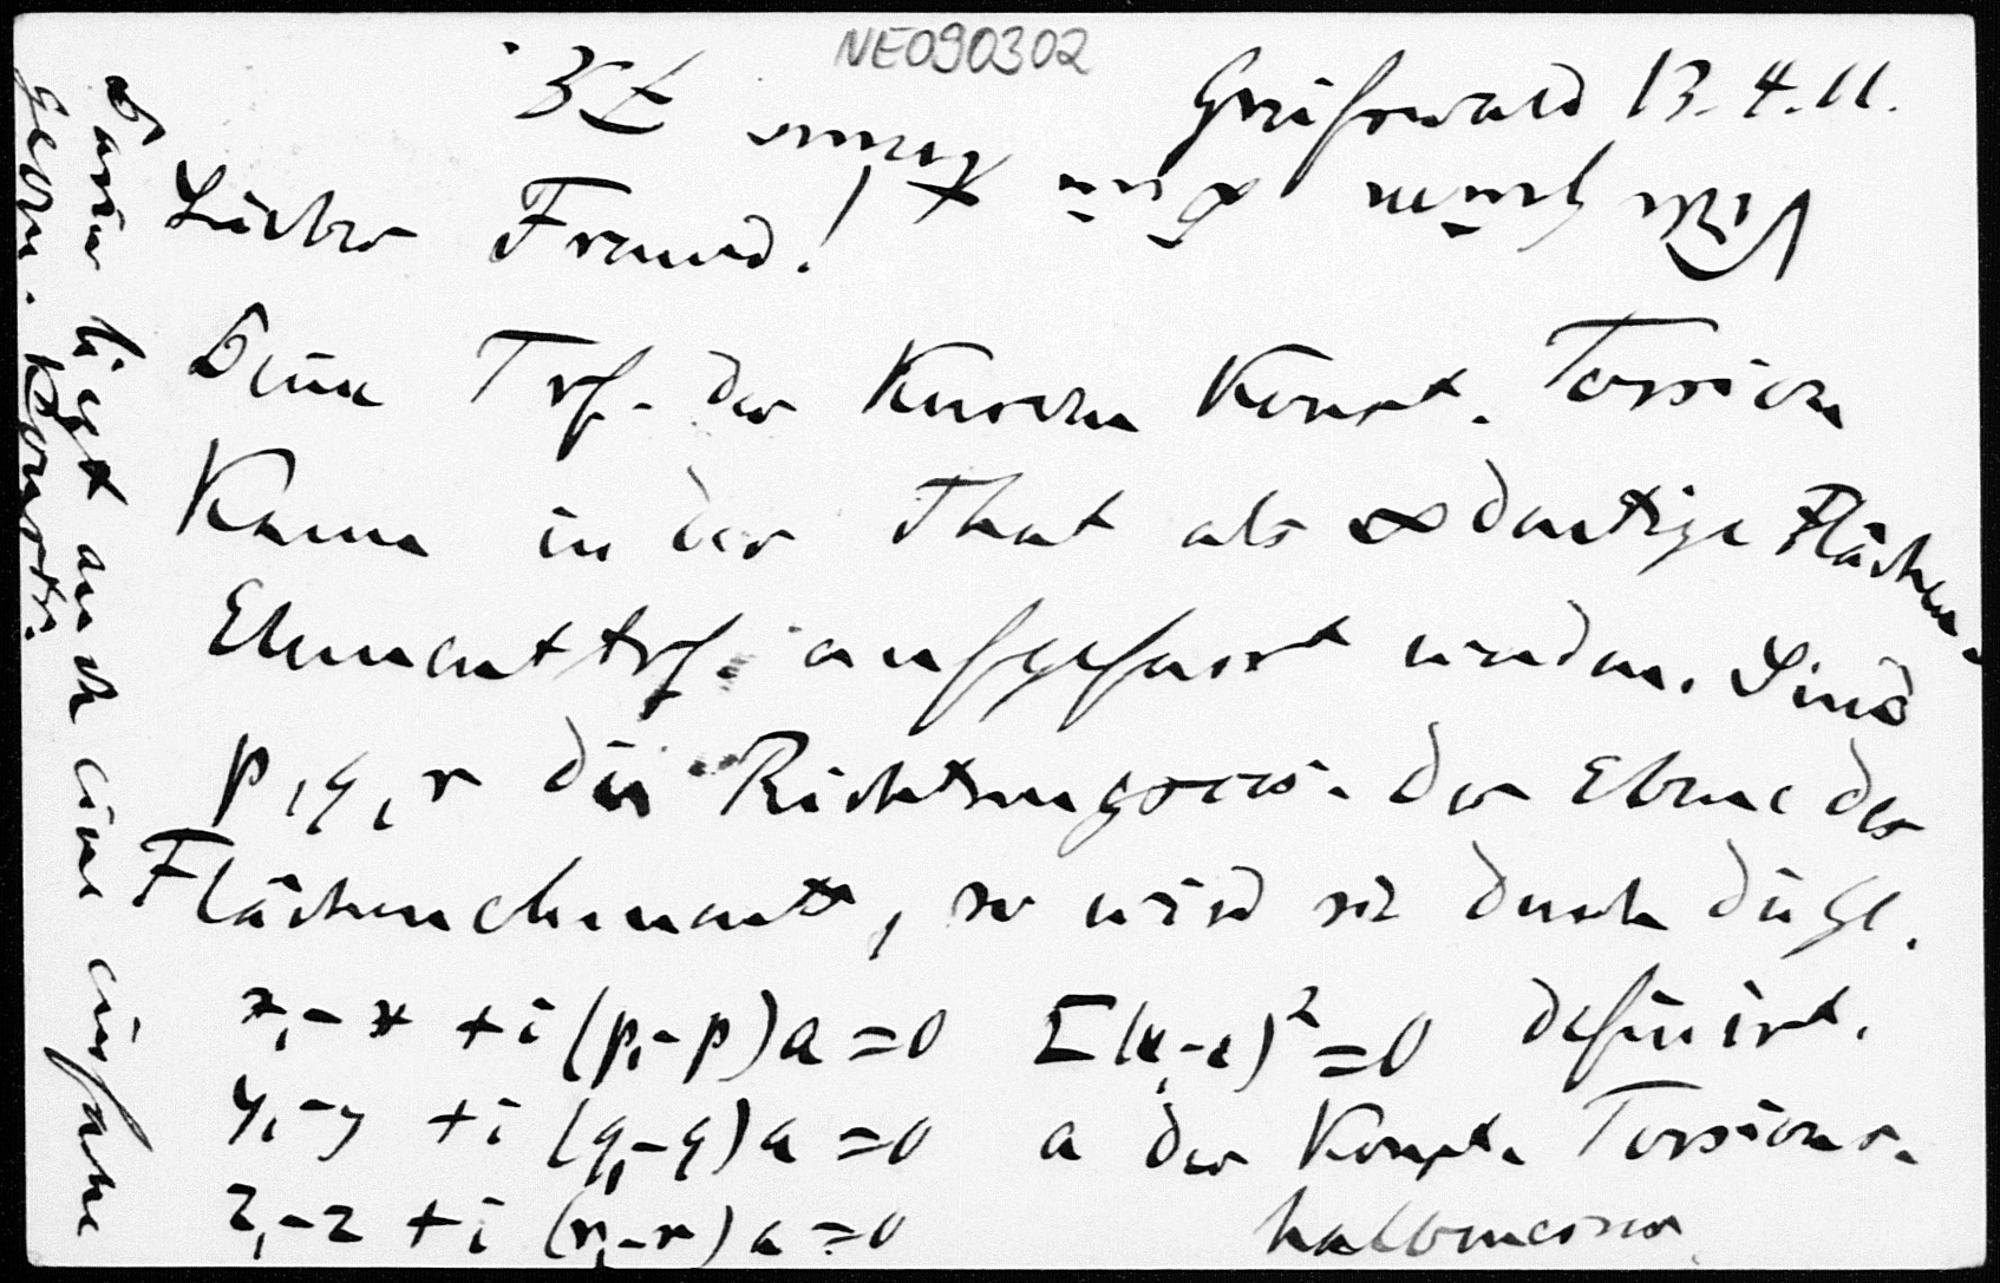 NE090302
Greifswald 13.4.11.
Lieber Freund!
Deine Trf. der Kurven Konst. Torsion
Kann in der That als ∞ deutige Flächen-
Elementtrf. aufgefasst werden. Sind
p, q, r die Richtungscos. der Ebene des
Flächenelements, so wird sie durch die Gl.
x₁-x +i(p₁-p)a=0 Σ(x₁-x)²=0 definirt.
y₁-y +i(q₁-q)a=0 a der Konst. Torsions-
z₁-z +i(r₁-r)a=0 halbmesser
Darin liegt auch eine einfache
geom. Konstr.
Viele Grüsse Dein